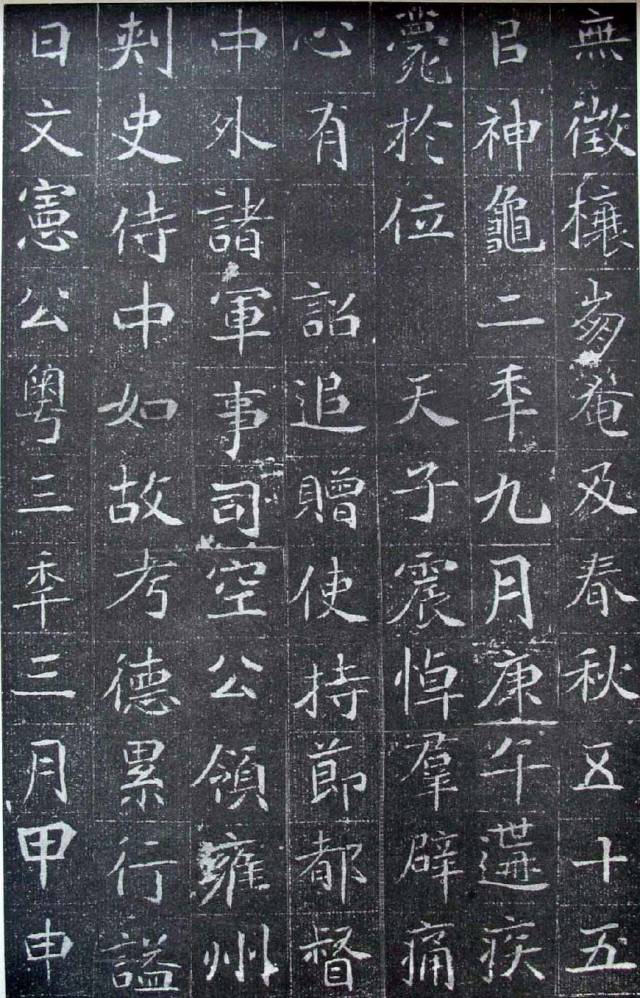 無徵欀奄及春秋五十五
㠯神龜二秊九月庚午遘疾
薨於位 天子震悼羣辟痛
心有 詔追贈使持節都督
中外諸軍事司空公領雍州
刾史侍中如故考德累行謚
曰文憲公粤三秊三月甲申